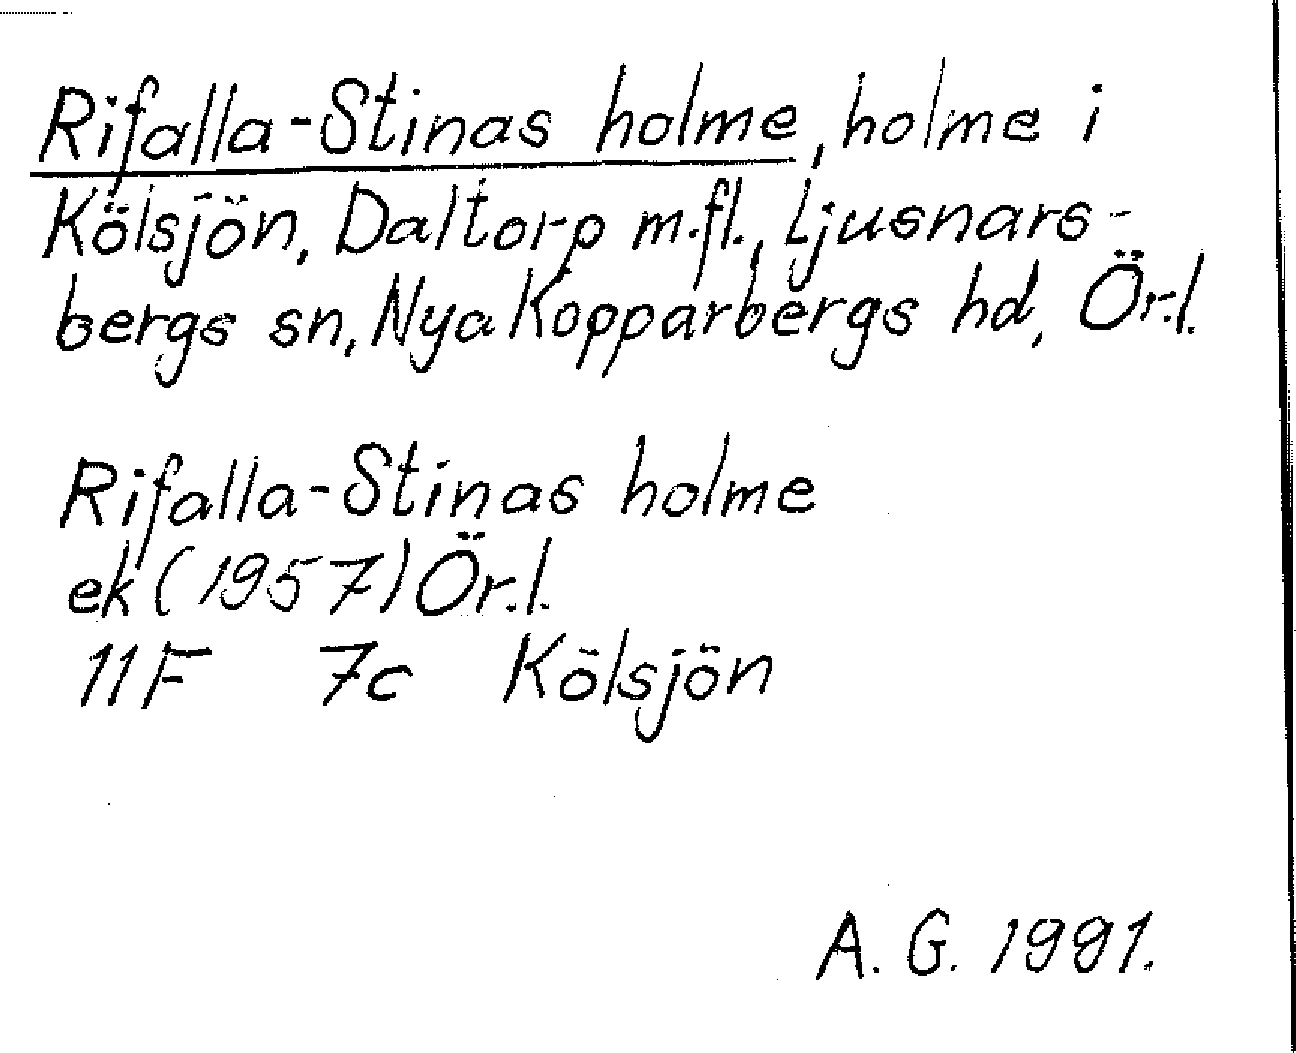 Rifalla-Stinas holme, holme i
Kölsjön, Daltorp m.fl., Ljusnars-
bergs sn, Nya Kopparbergs hd, Ör.l.
Rifalla-Stinas holme
ek (1957) Ör.l.
11F 7c Kölsjön
A. G. 1991.